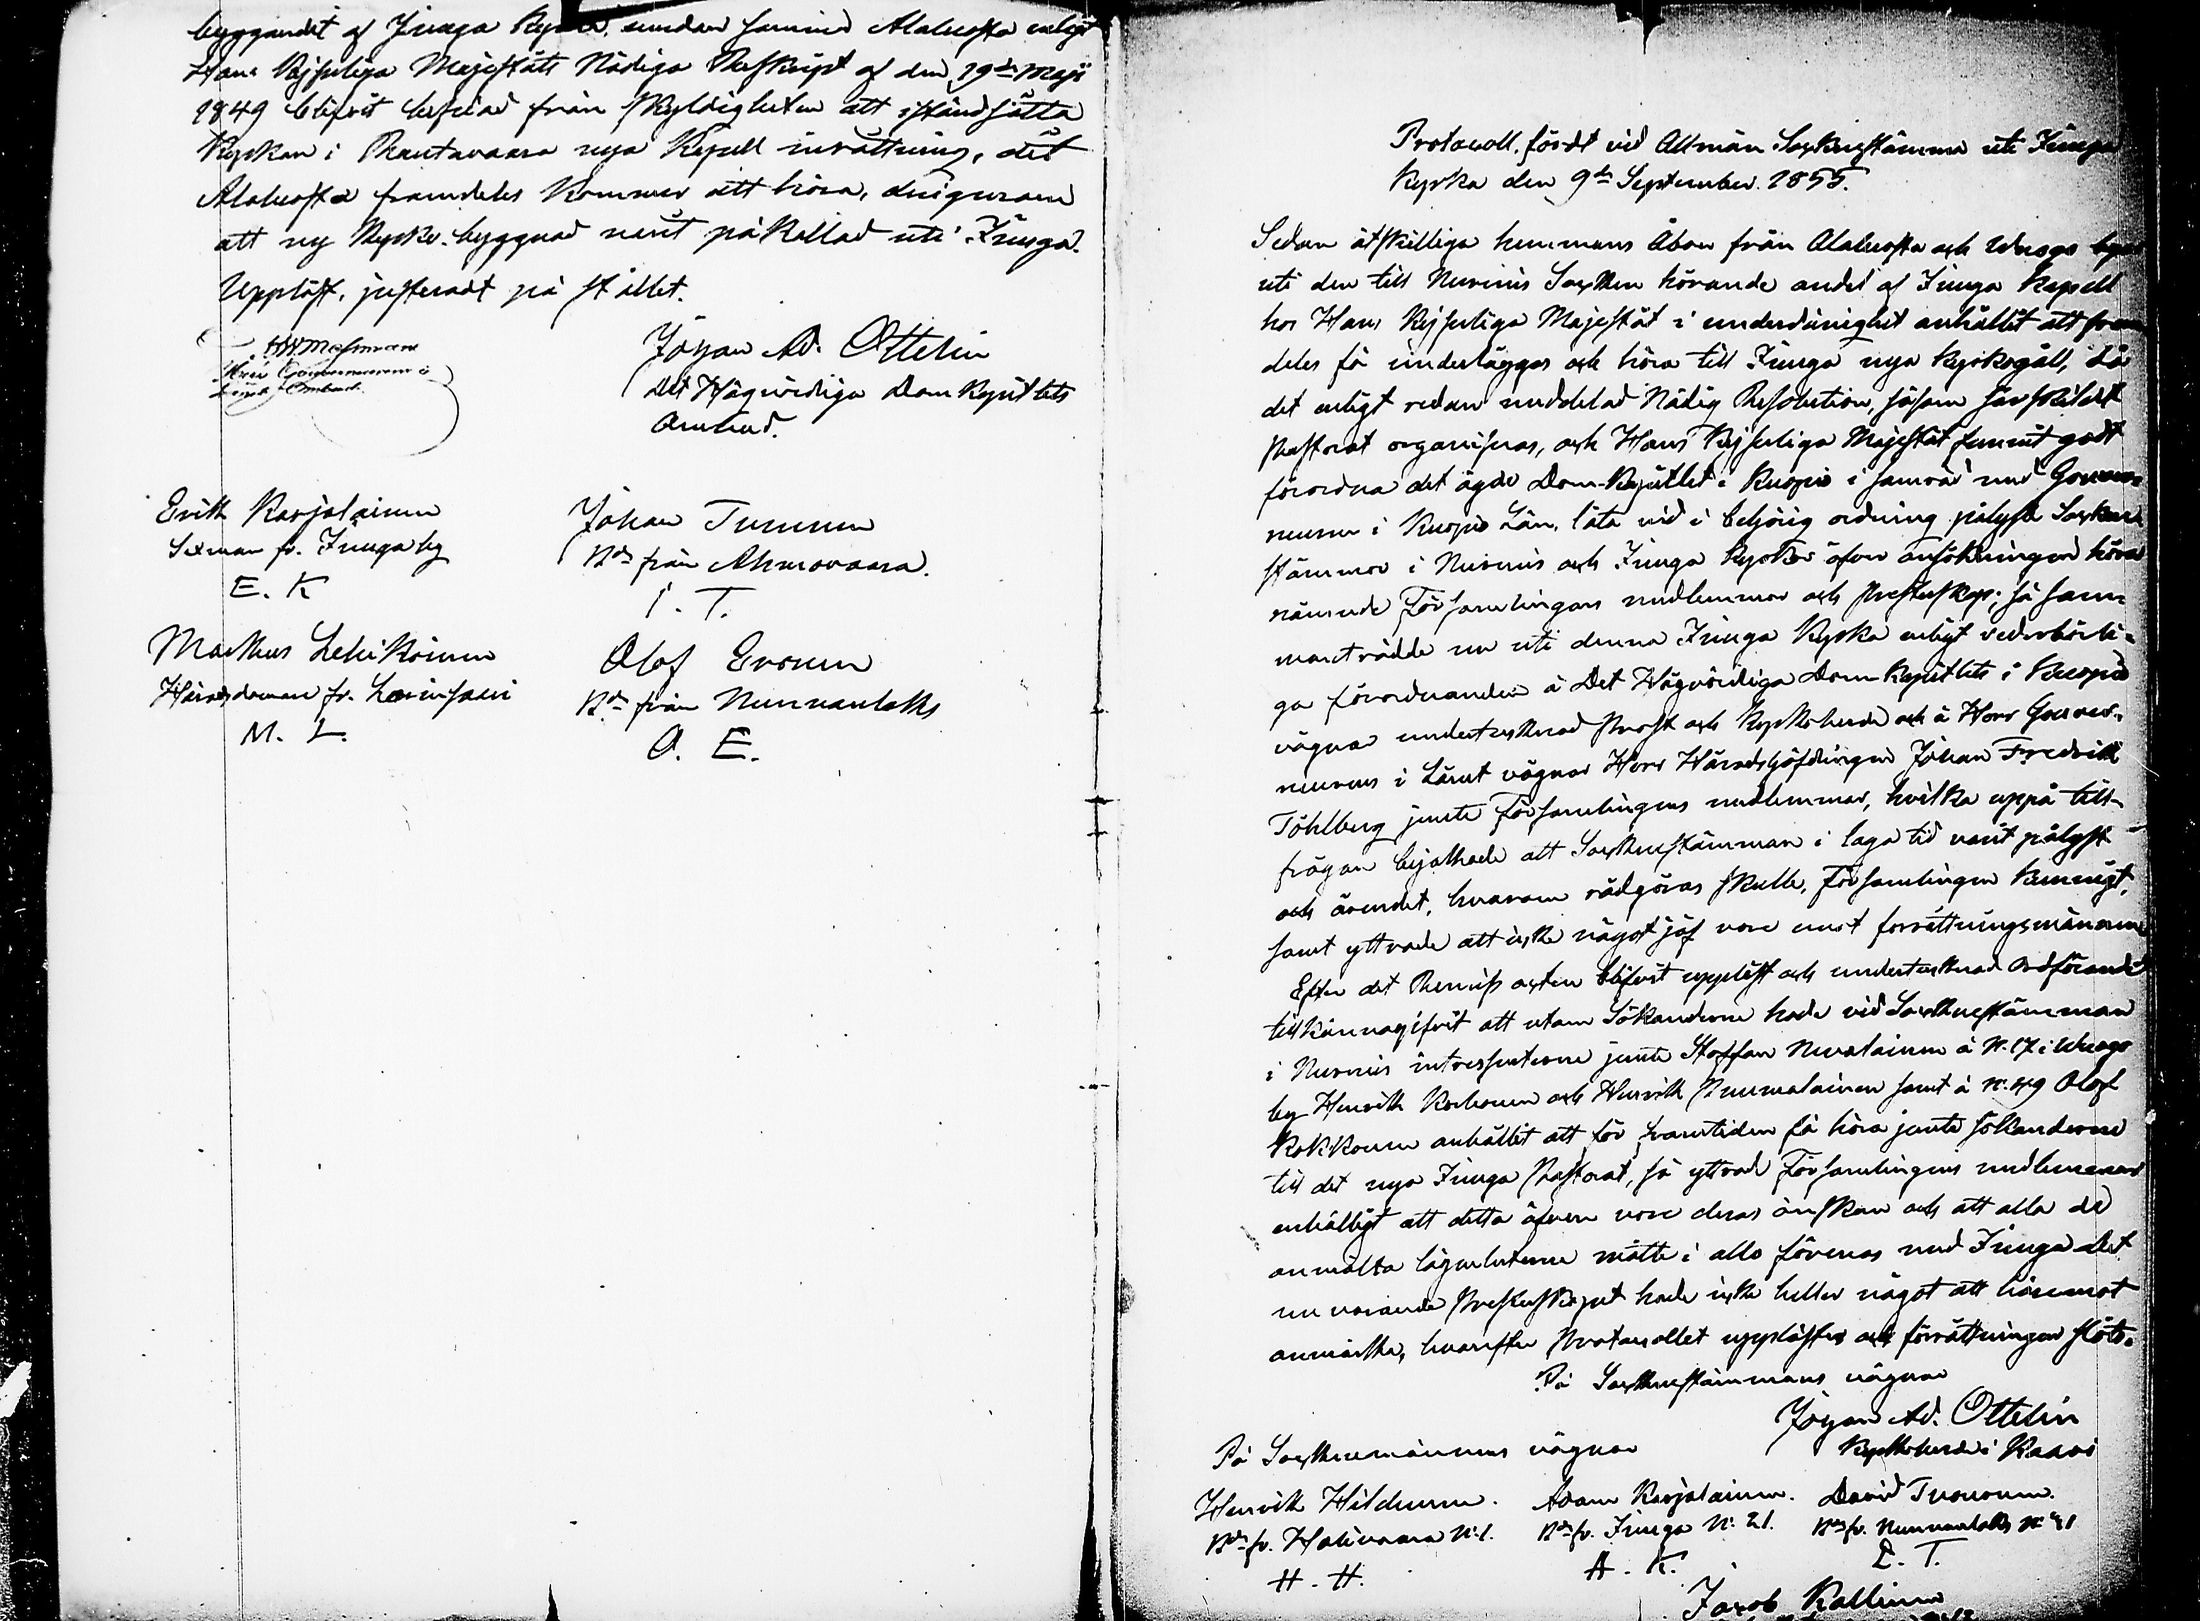 byggandet af Juuga Kyrka, sedan Alaluosta enligt
Hans Kejserliga Majestäts Nådiga Reskript af den 19de Maji
1849 blifvit befriad från skyldigheten att iståndsätta
Kyrkan i Rautavaara nya Kapell inrättning, dit
Alaluosta framdeles kommer att höra,
att ny Kyrko-byggnad varit påkallad uti Juuga.
Uppläst, justeradt på stället.
Johan Ad. Ottelin
Det Högvördiga Domkapitlets
Ombud.
Erik Karjalainen
Sexman fr. Juuga by
E. K
Johan Turunen
Bde från Ahmovaara.
I. T.
Markus Lehikoinen
Häradsdomare fr. Larinsaari
M. L.
Olof Eronen
Bde från Nunnanlaks
O. E.
Protocoll, fördt vid Allmän Sockenstämma uti Juuga
Kyrka den 9de September 1855.
Sedan åtskilliga hemmans Åboer från Alaluosta och
uti den till Nurmis Socken hörande andel af Juuga Kapell
hos Hans Kejserliga Majestät i underdånighet anhållit att fram
deles få underläggas och höra till Juuga nya kyrkogäll, då
det enligt redan meddelad Nådig Resolution, såsom särskildt
Pastorat organiseras, och Hans Kejserliga Majestät funnit godt
förordna det ägde Dom-Kapitlet i Kuopio i samråd med Gouver-
neuren i Kuopio Län, låta vid i behörig ordning pålyste Socken
stämmor i Nurmis och Juuga Kyrkor öfver ansökningen höra
nämnde Församlingars medlemmar och Presterskap; så sam-
manträdde nu uti denna Juuga Kyrka enligt vederbörli-
ga förordnanden å Det Högvördiga Dom-Kapitlets i Kuopio
vägnar undertecknad Prost och Kyrkoherde och å Herr Gouver-
neurens i Länet vägnar Herr Häradshöfdingen Johan Fredrik
Töhlberg jemte Församlingens medlemmar, hvilka uppå till-
frågan bejakade att Sockenstämman i laga tid varit pålyst
och ärendet, hvarom rådgöras skulle, Församlingen kunnigt,
samt yttrade att icke något jäf vore emot förrättningsmännen
Efter det Remiss acten blifvit uppläst och undertecknad Ordförande
tillkännagifvit att utom Sökanderne hade vid Sockenstämman
i Nurmis intressenterne jemte Staffan Nevalainen å N. 17 i
by Henrik Korhonen och Henrik samt å N. 49 Olof
Kokkonen anhållit att för framtiden få höra jemte sökanderne
till det nya Juuga Pastorat, så yttrade Församlingens medlemmar
enhälligt att detta äfven vore deras önskan och att alla de
anmälta lägenheterne måtte i allo förenas med Juuga. Det
nu varande Presterskapet hade icke heller något att häremot
anmärka, hvarefter Protocollet upplästes och förrättningen slöts.
På Sockenstämmans vägnar
Johan Ad. Ottelin
Kyrkoherde i Kaavi
På Sockenmännens vägnar
Henrik Hildunen.
Bde fr. Halivaara N. 1.
H. H.
Adam Karjalainen.
Bde fr. Juuga N. 21.
A. K.
David Turunen.
Bde fr. Nunnanlaks
D. T.
Jacob Kallinen